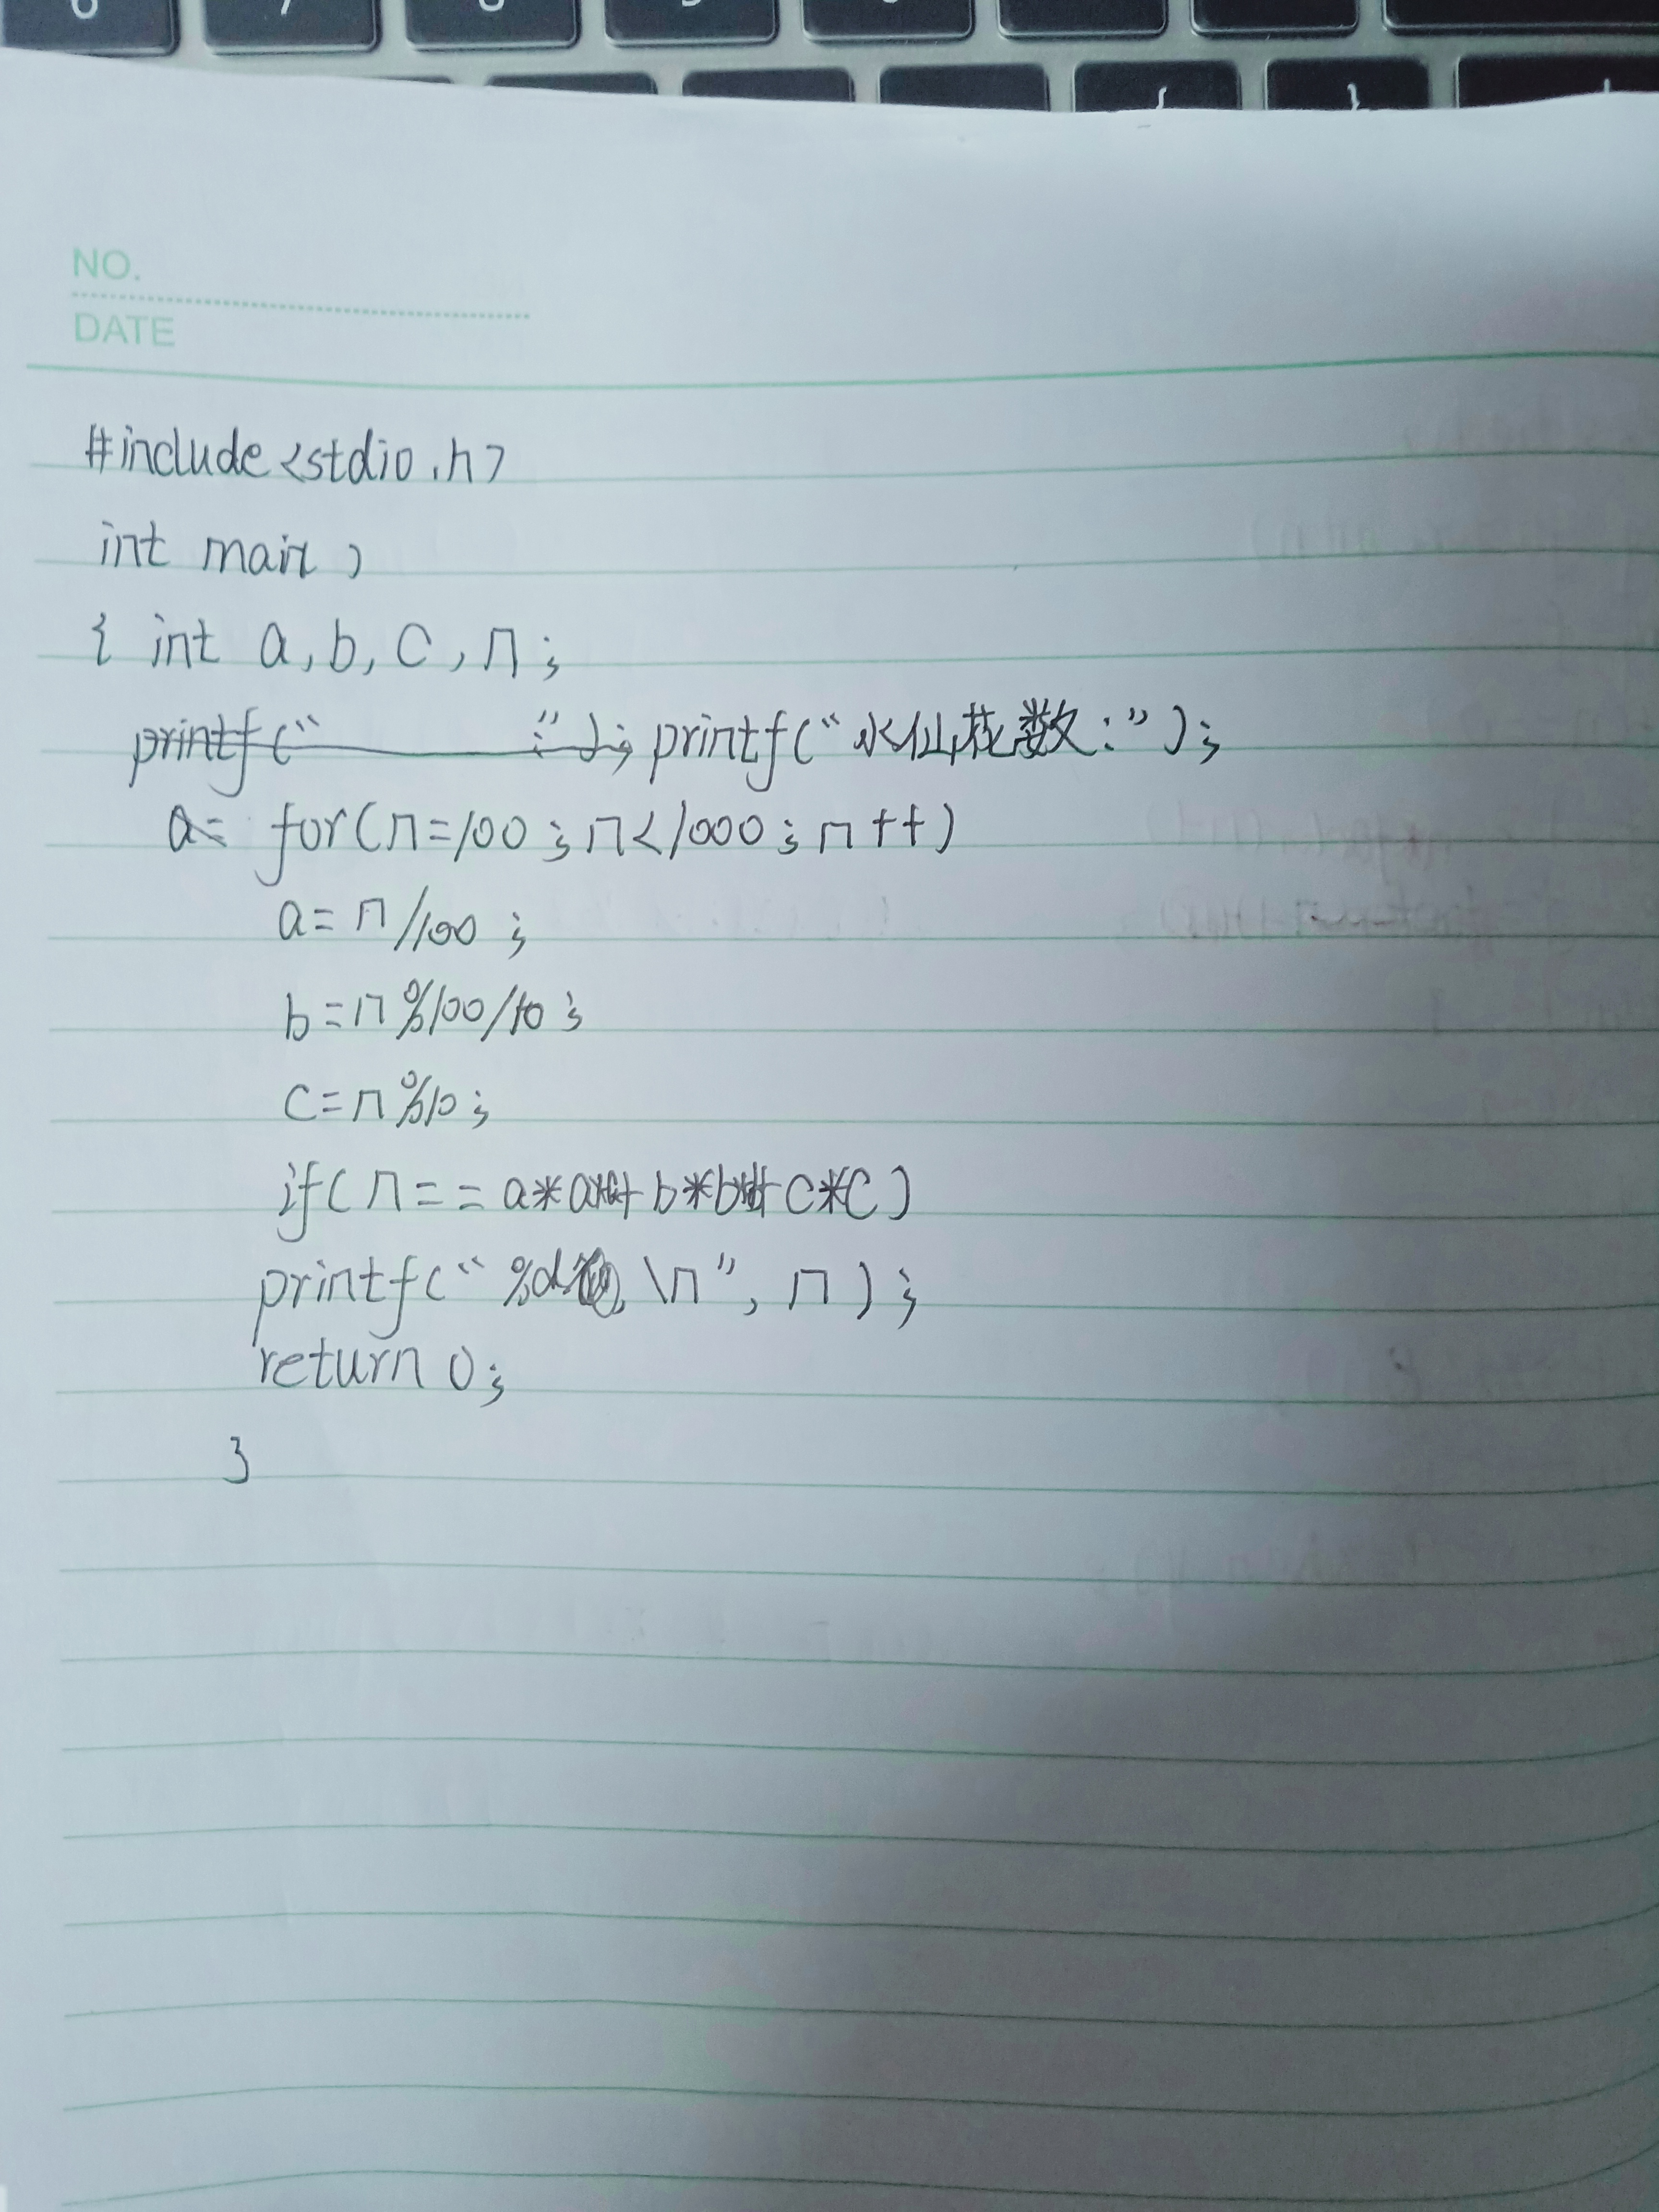 6 7 8 9
{ }
NO.
DATE
#include<stdio.h>
int main)
{ int a,b,c,n;
printf(“ :”); printf(“水仙花数:”);
a= for(n=100;n<1000;n++)
a=n/100;
b=n%100/10;
c=n%10;
if(n==a*a*a+b*b*b+c*c)
printf(“%d \n”,n);
return 0;
}